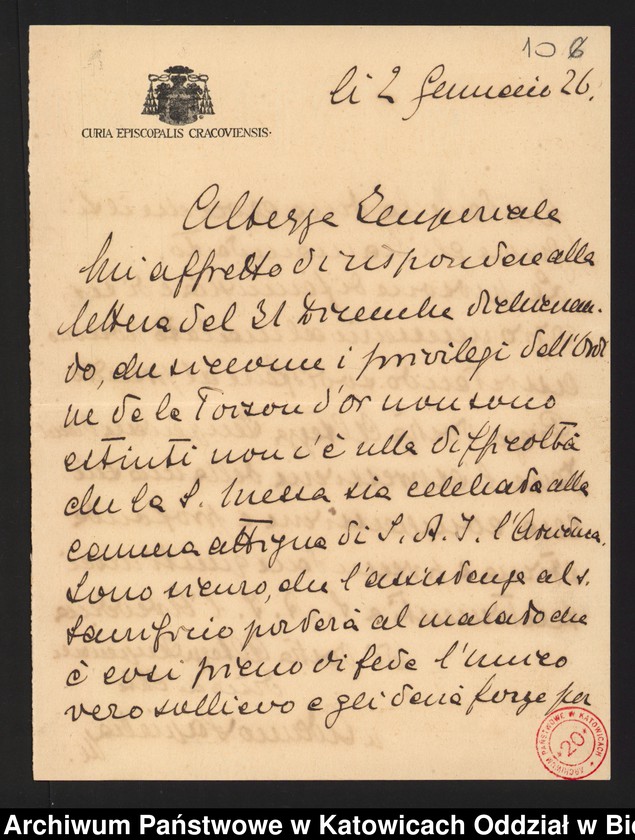 10 6
CURIA EPISCOPALIS CRACOVIENSIS.
li 2 Gennaio 26.
Altezza Imperiale
Mi affretto di rispondere alla
lettera del 31 Dicembre dichiaran-
do, che siccome i privilegi dell'Ordi
ne de la Toison d'or non sono
estinti non c'è ulla difficoltà
che la S. Messa sia celebrata alla
camera attigua di S. A. I. l'Arciduca.
Sono sicuro, che l'assistenza al s.
Sacrificio porterà al malato che
è così pieno di fede l'unico
vero sollievo e gli darà forze per
ARCHIWUM PAŃSTWOWE W KATOWICACH
20
Archiwum Państwowe w Katowicach Oddział w Bie